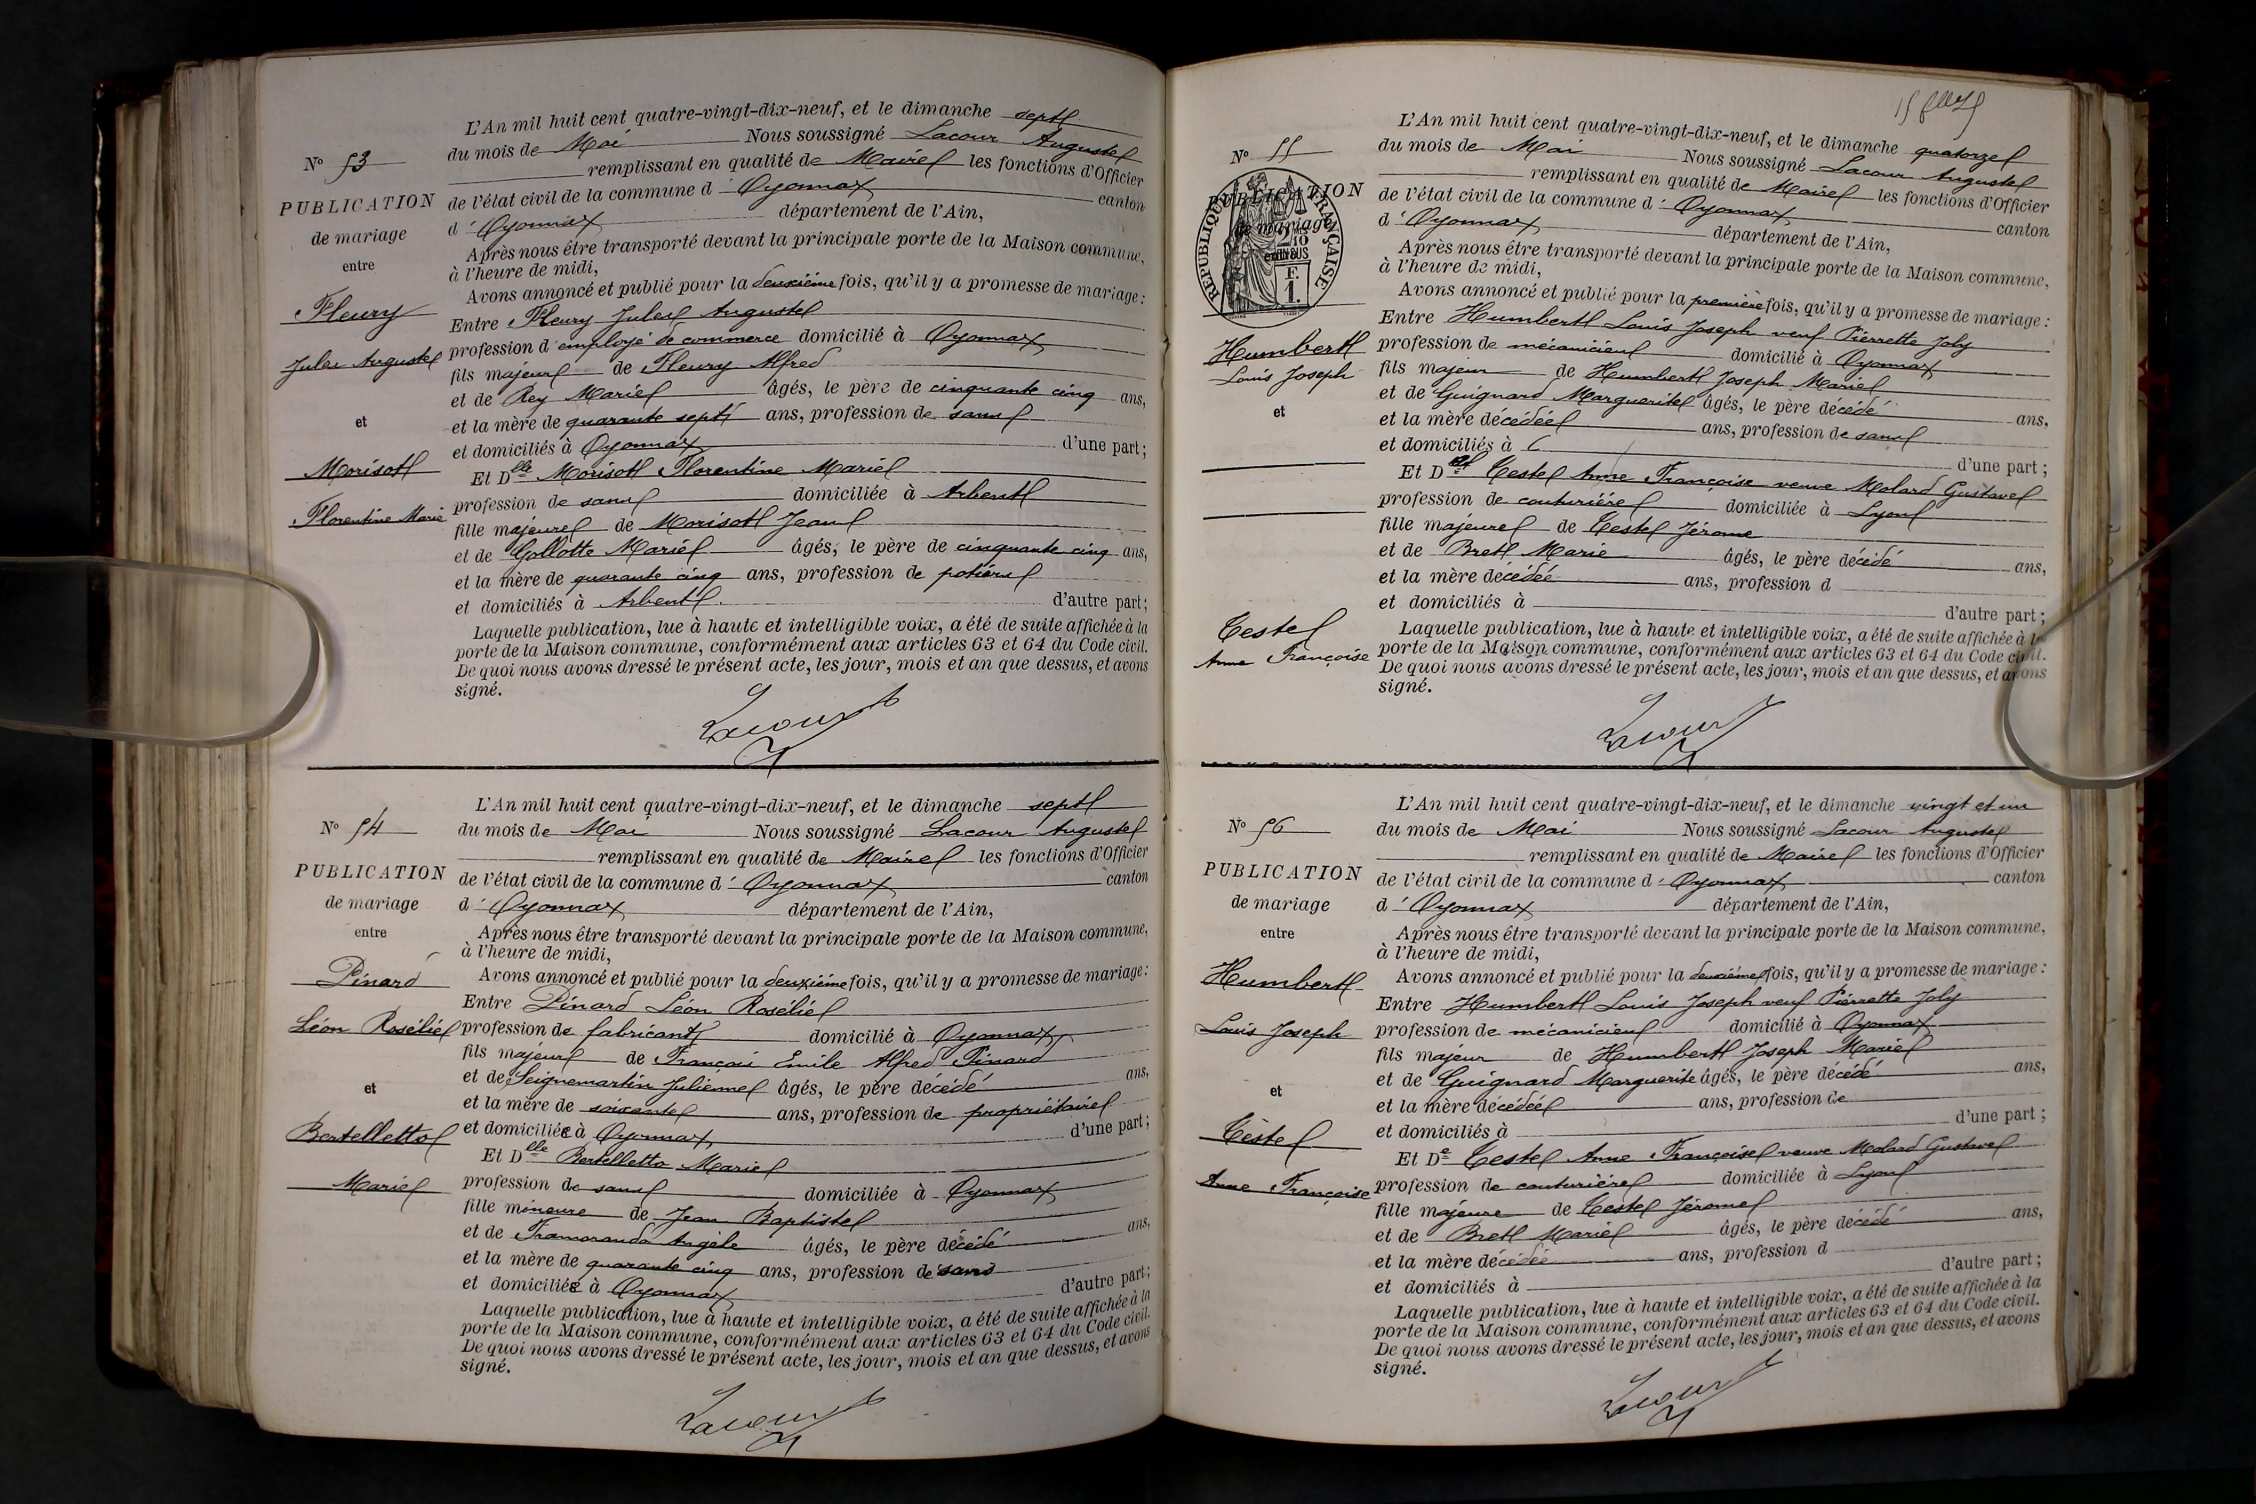 L'An mil huit cent quatre-vingt-dix-neuf, et le dimanche sept
du mois de Mai Nous soussigné Lacour Auguste
remplissant en qualité de Maire les fonctions d'Officier
de l'état civil de la commune d' Oyonnax canton
d' Oyonnax département de l'Ain,
Après nous être transporté devant la principale porte de la Maison commune,
à l'heure de midi,
Avons annoncé et publié pour la deuxième fois, qu'il y a promesse de mariage :
Entre Fleury Jules Auguste
profession d'employé de commerce domicilié à Oyonnax
fils majeur de Fleury Alfred
et de Rey Marie âgés, le père de cinquante cinq ans,
et la mère de quarante sept ans, profession de sans
et domiciliés à Oyonnax d'une part ;
Et Dlle Morisot Florentine Marie
profession de sans domiciliée à Arbent
fille majeure de Morisot Jean
et de Gollotte Marie âgés, le père de cinquante cinq ans,
et la mère de quarante cinq ans, profession de
et domiciliés à Arbent d'autre part ;
Laquelle publication, lue à haute et intelligible voix, a été de suite affichée à la
porte de la Maison commune, conformément aux articles 63 et 64 du Code civil.
De quoi nous avons dressé le présent acte, les jour, mois et an que dessus, et avons
signé.
Lacour
N° 53
PUBLICATION
de mariage
entre
Fleury
Jules Auguste
et
Morisot
Florentine Marie
L'An mil huit cent quatre-vingt-dix-neuf, et le dimanche sept
du mois de Mai Nous soussigné Lacour Auguste
remplissant en qualité de Maire les fonctions d'Officier
de l'état civil de la commune d' Oyonnax canton
d' Oyonnax département de l'Ain,
Après nous être transporté devant la principale porte de la Maison commune,
à l'heure de midi,
Avons annoncé et publié pour la deuxième fois, qu'il y a promesse de mariage :
Entre Pinard Léon Rosélie
profession de fabricant domicilié à Oyonnax
fils majeur de Françai Emile Alfred Pinard
et de Seignemartin Julienne âgés, le père décédé ans,
et la mère de soixante ans, profession de propriétaire
et domiciliée à Oyonnax d'une part ;
Et Dlle Bertelletto Marie
profession de sans domiciliée à Oyonnax
fille mineure de Jean Baptiste
et de Framoranda Angèle âgés, le père décédé ans,
et la mère de quarante cinq ans, profession de sans
et domiciliée à Oyonnax d'autre part ;
Laquelle publication, lue à haute et intelligible voix, a été de suite affichée à la
porte de la Maison commune, conformément aux articles 63 et 64 du Code civil.
De quoi nous avons dressé le présent acte, les jour, mois et an que dessus, et avons
signé.
Lacour
N° 54
PUBLICATION
de mariage
entre
Pinard
Léon Rosélie
et
Bertelletto
Marie
L'An mil huit cent quatre-vingt-dix-neuf, et le dimanche quatorze
du mois de Mai Nous soussigné Lacour Auguste
remplissant en qualité de Maire les fonctions d'Officier
de l'état civil de la commune d' Oyonnax canton
d' Oyonnax département de l'Ain,
Après nous être transporté devant la principale porte de la Maison commune,
à l'heure de midi,
Avons annoncé et publié pour la première fois, qu'il y a promesse de mariage :
Entre Humbert Louis Joseph veuf Pierrette Joly
profession de mécanicien domicilié à Oyonnax
fils majeur de Humbert Joseph Marie
et de Guignard Marguerite âgés, le père décédé ans,
et la mère décédée ans, profession de sans
et domiciliés à d'une part ;
Et De Testel Anne Françoise veuve Molard Gustave
profession de couturière domiciliée à Lyon
fille majeure de Testel Jérome
et de Bret Marie âgés, le père décédé ans,
et la mère décédée ans, profession d
et domiciliés à d'autre part ;
Laquelle publication, lue à haute et intelligible voix, a été de suite affichée à la
porte de la Maison commune, conformément aux articles 63 et 64 du Code civil.
De quoi nous avons dressé le présent acte, les jour, mois et an que dessus, et avons
signé.
Lacour
N° 55
PUBLICATION
de mariage
entre
RÉPUBLIQUE FRANÇAISE
2/10
EN SUS
F.
1.
Humbert
Louis Joseph
et
Testel
Anne Françoise
L'An mil huit cent quatre-vingt-dix-neuf, et le dimanche vingt et un
du mois de Mai Nous soussigné Lacour Auguste
remplissant en qualité de Maire les fonctions d'Officier
de l'état civil de la commune d' Oyonnax canton
d' Oyonnax département de l'Ain,
Après nous être transporté devant la principale porte de la Maison commune,
à l'heure de midi,
Avons annoncé et publié pour la deuxième fois, qu'il y a promesse de mariage :
Entre Humbert Louis Joseph veuf Pierrette Joly
profession de mécanicien domicilié à Oyonnax
fils majeur de Humbert Joseph Marie
et de Guignard Marguerite âgés, le père décédé ans,
et la mère décédée ans, profession de
et domiciliés à d'une part ;
Et De Testel Anne Françoise veuve Molard Gustave
profession de couturière domiciliée à Lyon
fille majeure de Testel Jérome
et de Bret Marie âgés, le père décédé ans,
et la mère décédée ans, profession d
et domiciliés à d'autre part ;
Laquelle publication, lue à haute et intelligible voix, a été de suite affichée à la
porte de la Maison commune, conformément aux articles 63 et 64 du Code civil.
De quoi nous avons dressé le présent acte, les jour, mois et an que dessus, et avons
signé.
Lacour
N° 56
PUBLICATION
de mariage
entre
Humbert
Louis Joseph
et
Testel
Anne Françoise